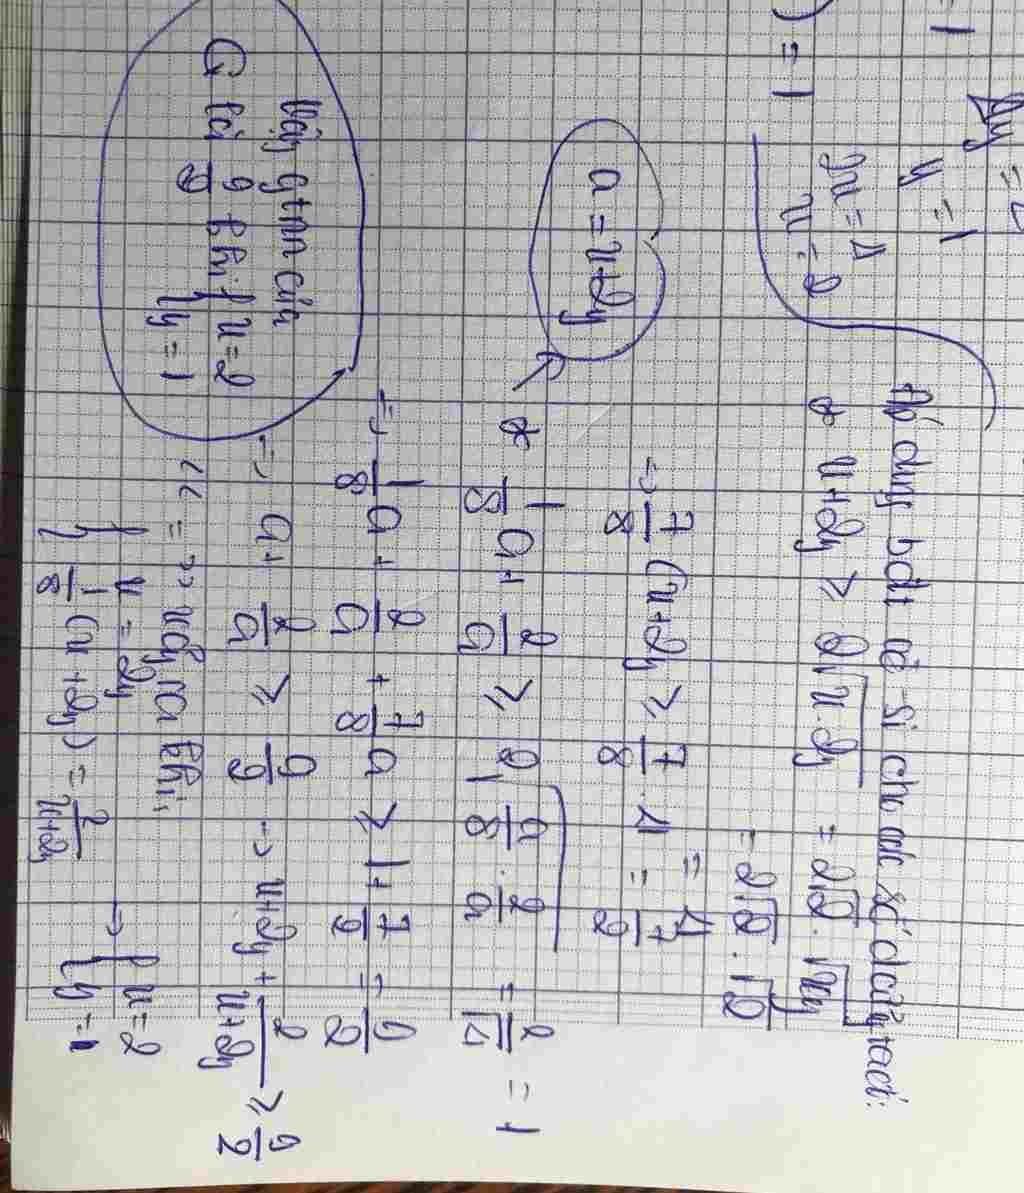 y = 1
2x = 4
x = 2
Áp dụng bđt cô-si cho các số dương ta có:
* x+2y ≥ 2√x.2y = 2√2.√xy
= 2√2.√2
= 4
→ 7/8 (x+2y) ≥ 7/8 . 4 = 7/2
a = x+2y
* 1/8 a + 2/a ≥ 2√a/8 . 2/a = 2/√4 = 1
→ 1/8 a + 2/a + 7/8 a ≥ 1 + 7/2 = 9/2
→ a + 2/a ≥ 9/2 → x+2y + 2/x+2y ≥ 9/2
"=" xảy ra khi:
{ x = 2y
1/8 (x+2y) = 2/x+2y
→ { x=2
y=1
Vậy gtnn của
G là 9/2 khi { x=2
y=1